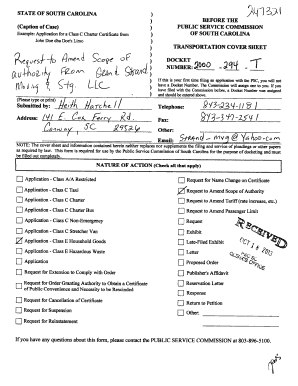 247321
STATE OF SOUTH CAROLINA
(Caption of Case)
Example: Application for a Class C Charter Certificate from
John Doe dba Doe's Limo
Request to Amend Scope of
Authority From Grand Strand
Moving & Stg. LLC
BEFORE THE
PUBLIC SERVICE COMMISSION
OF SOUTH CAROLINA
TRANSPORTATION COVER SHEET
DOCKET
NUMBER: 2000 - 294 - T
If this is your first time filing an application with the PSC, you will not
have a Docket Number. The Commission will assign one to you. If you
have filed with the Commission before, a Docket Number was assigned
and should be entered above.
(Please type or print)
Submitted by: Heath Hatchell
Address: 141 E. Cox Ferry Rd.
Conway, SC
29526
Telephone: 843-234-1181
Fax: 843-347-2541
Other:
Email: Strand-mvg@yahoo.com
NOTE: The cover sheet and information contained herein neither replaces nor supplements the filing and service of pleadings or other papers
as required by law. This form is required for use by the Public Service Commission of South Carolina for the purpose of docketing and must
be filled out completely.
NATURE OF ACTION (Check all that apply)
Application - Class A/A Restricted
Application - Class C Taxi
Application - Class C Charter
Application - Class C Charter Bus
Application - Class C Non-Emergency
Application - Class C Stretcher Van
Application - Class E Household Goods
Application - Class E Hazardous Waste
Application
Request for Extension to Comply with Order
Request for Order Granting Authority to Obtain a Certificate
of Public Convenience and Necessity to be Rescinded
Request for Cancellation of Certificate
Request for Suspension
Request for Reinstatement
Request for Name Change on Certificate
Request to Amend Scope of Authority
Request to Amend Tariff (rate increase, etc.)
Request to Amend Passenger Limit
Request
Exhibit
Late-Filed Exhibit
Letter
Proposed Order
Publisher's Affidavit
Reservation Letter
Response
Return to Petition
Other:
RECEIVED
OCT 16 2013
PSC SC
CLERK'S OFFICE
If you have any questions about this form, please contact the PUBLIC SERVICE COMMISSION at 803-896-5100.